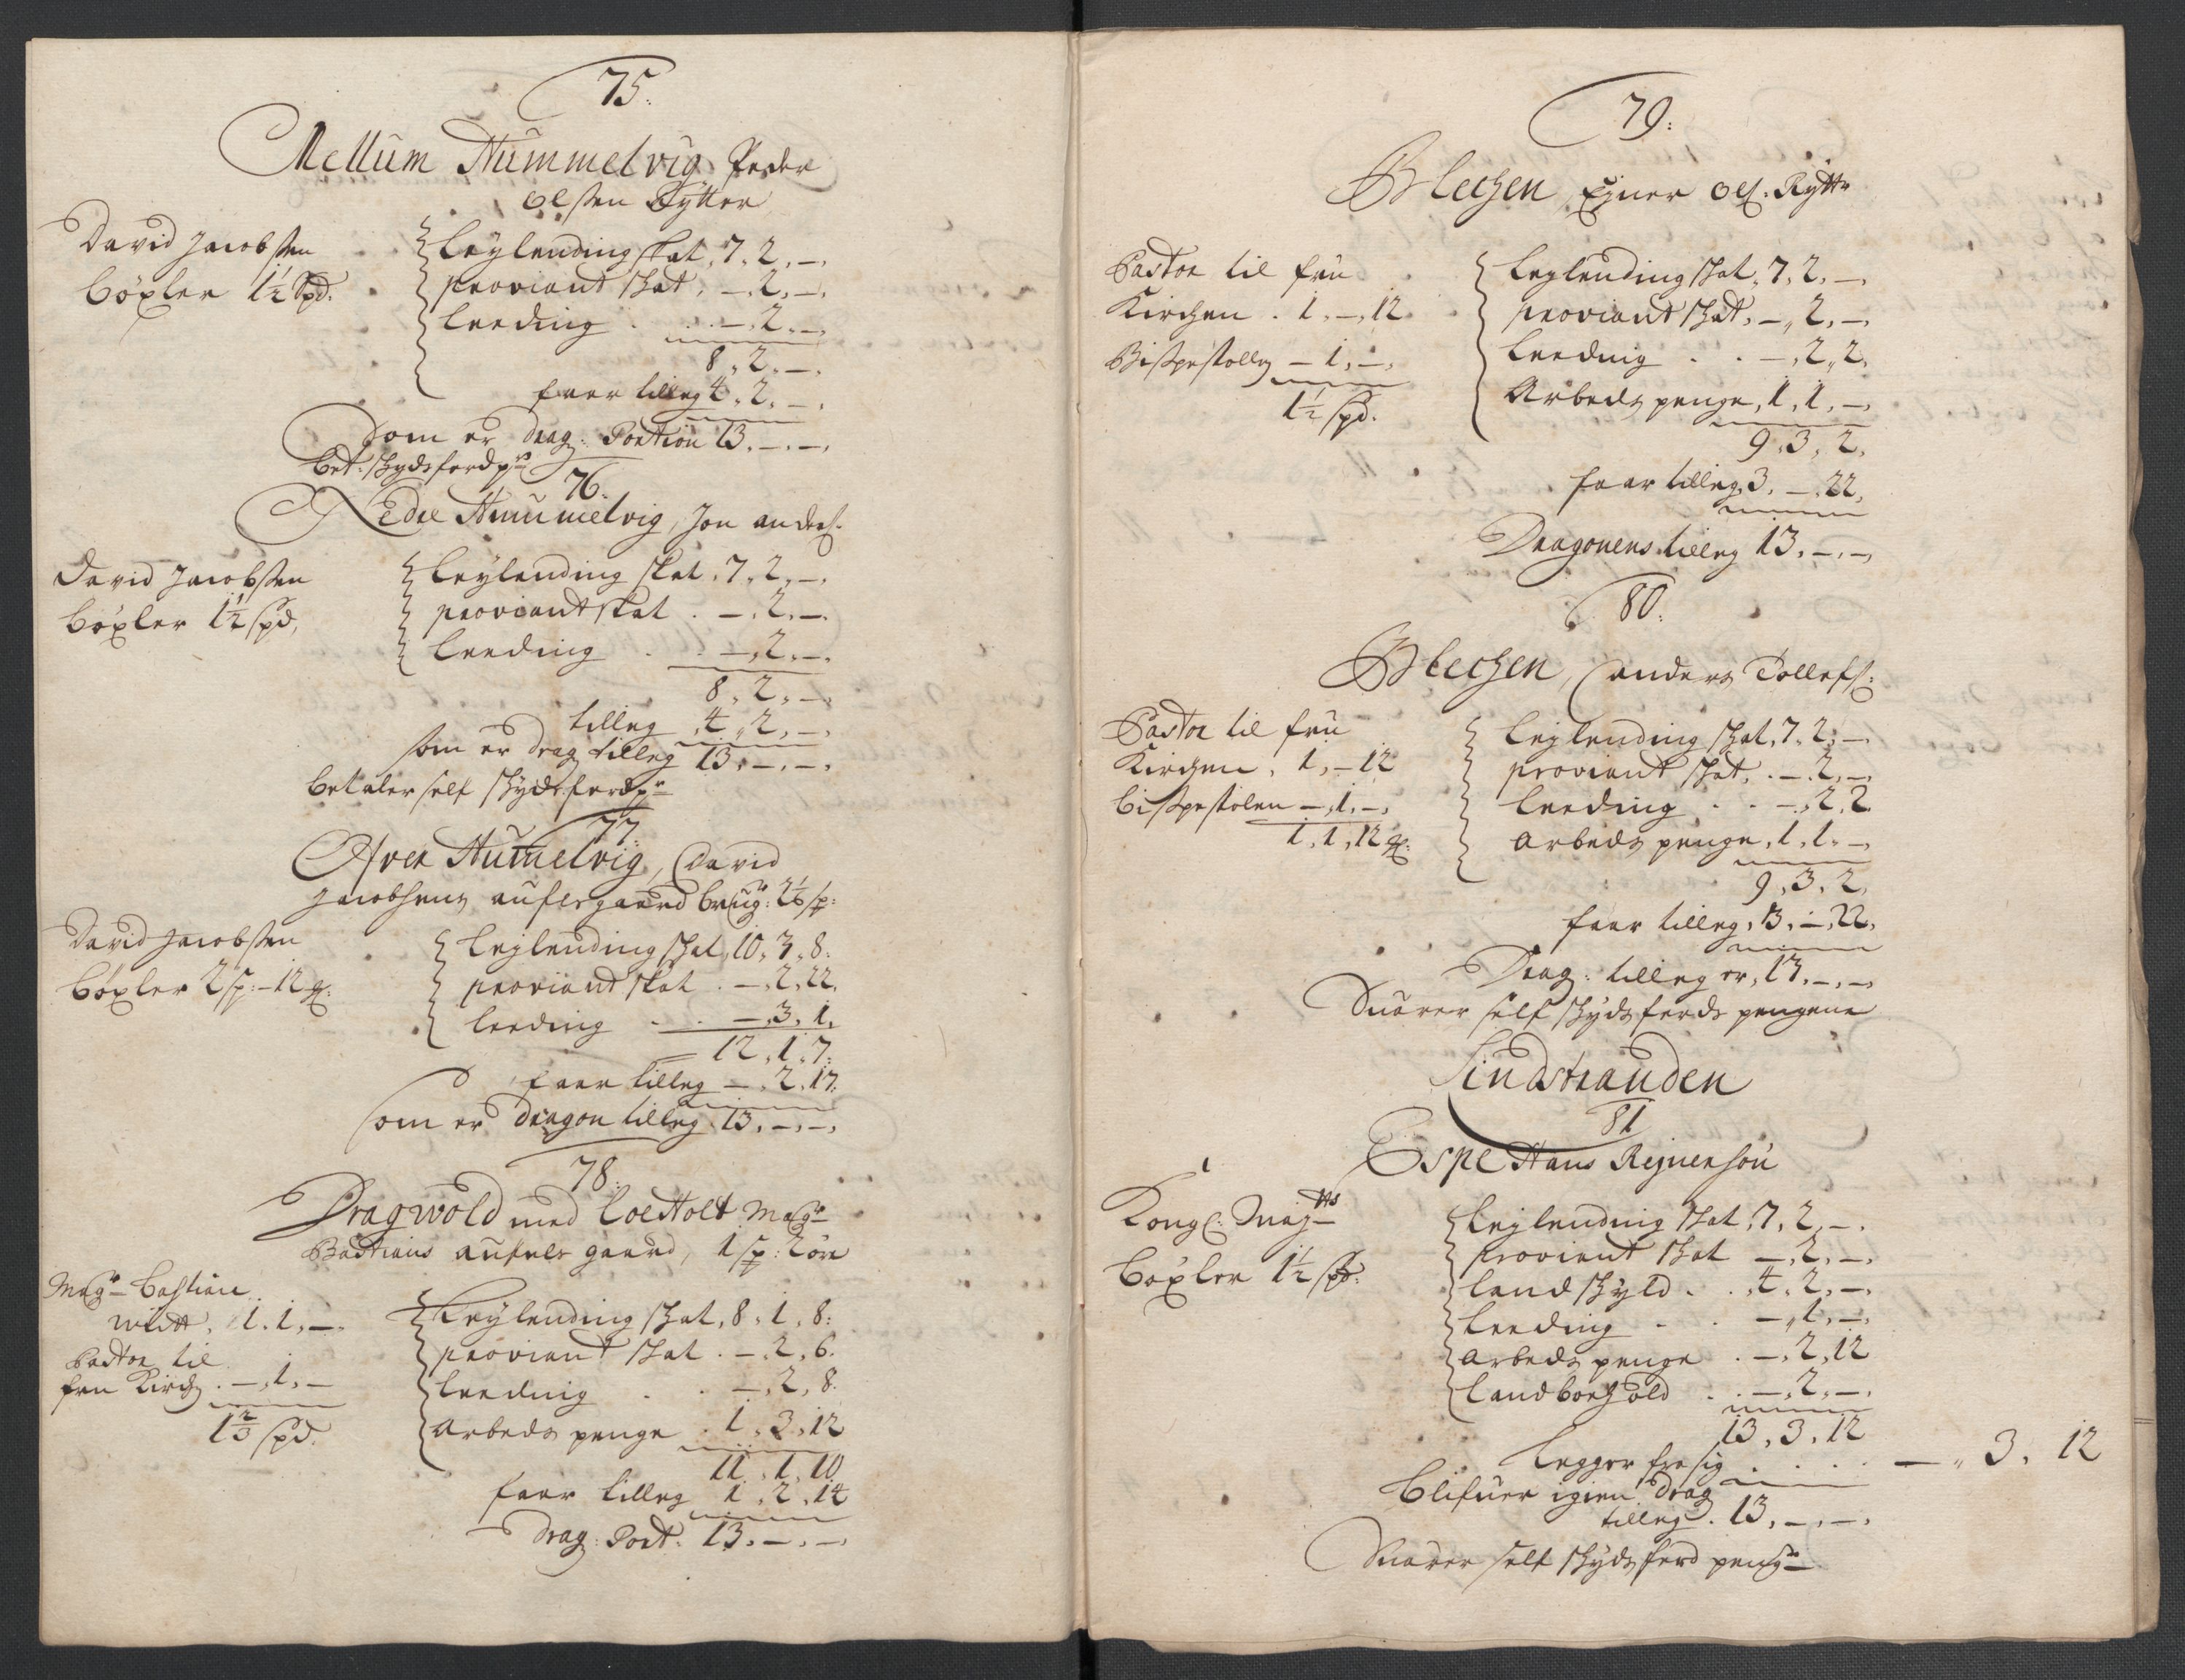 75.
Mellum Hummelvig Peder
Olssen Rytter
David Jacobssen
böxler 1½ Spd.
Leÿlending skat, 7, 2, -,
proviant skat, -, 2, -,
Leeding . . -, 2, -,
8, 2, -,
faar tilleg 4, 2, -,
som er drag: Portion 13, -, -,
bet: skydsferdp
76.
Nedre Hummelvig, Jon anders:
David Jacobssen
böxler 1½ spd,
Leÿlending skat, 7, 2, -,
proviant skat . -, 2, -,
Leeding . . -, 2, -,
8, 2, -,
tilleg 4, 2, -,
som er drag tilleg 13, -, -,
betaler self skydsferdp
77.
Øver Hummelvig, David
Jacobsens aufls gaard brug: 2⅙ sp:
David Jacobssen
böxler 2 sp: - 12
Lejlending skat, 10, 3, 8:
proviant skat . -, 2, 22,
leeding . . -, 3, 1,
12, 1, 7:
faar tilleg -, 2, 17:
som er dragon tilleg 13, -, -,
78.
Dragwold med Loeholt Mag
Bastians aufuls gaard, 1 sp: 2 öre
Mag Bastian
widt, 1, 1, -,
Pastor til
fru Kirch . -, 1, -
1⅔ spd.
Leÿlending skat, 8, 1, 8:
proviant skat . -, 2, 6.
leeding . . -, 2, 8.
arbeds penge . 1, 3, 12
11, 1, 10
faar tilleg 1, 2, 14
drag: Port: 13, -, -,
79.
Blechen, Ejner Ols: Rytter
Pastor til fru
Kirchen . 1, -, 12
Bispestollen - 1, -,
1½ spd.
Leylending skat, 7, 2, -,
proviant skat, -, 2, -,
Leeding . . -, 2, 2,
Arbeds penge, 1, 1, -,
9, 3, 2,
faar tilleg, 3, -, 22,
Dragonens tilleg 13, -, -,
80.
Blechen, anders Tollefs:
Pastor til fru
Kirchen, 1, - 12
bispestolen -, 1, -,
1, 1, 12
Lejlending skat, 7, 2, -,
proviant skat, . -, 2, -,
leeding . . -, 2, 2
arbeds penge, 1, 1, -,
9, 3, 2,
faar tilleg, 3, -, 22,
Drag: tilleg er, 13, -, -,
Suarer self skyds ferds pengene
Lindstranden
81
Espe Hans Rejnersøn
Kongl: Maj
böxler 1½ spd:
Lejlending skat, 7, 2, -,
proviant skat -, 2, -,
landskyld . . 4, 2, -,
leeding . . -, 1, -,
arbeds penge . -, 2, 12
landboehold . . -, 2, -,
13, 3, 12
legger fra sig . . . . -, 3, 12
blifuer igien drag
tilleg . 13, -, -,
Suarer self skyds ferd peng